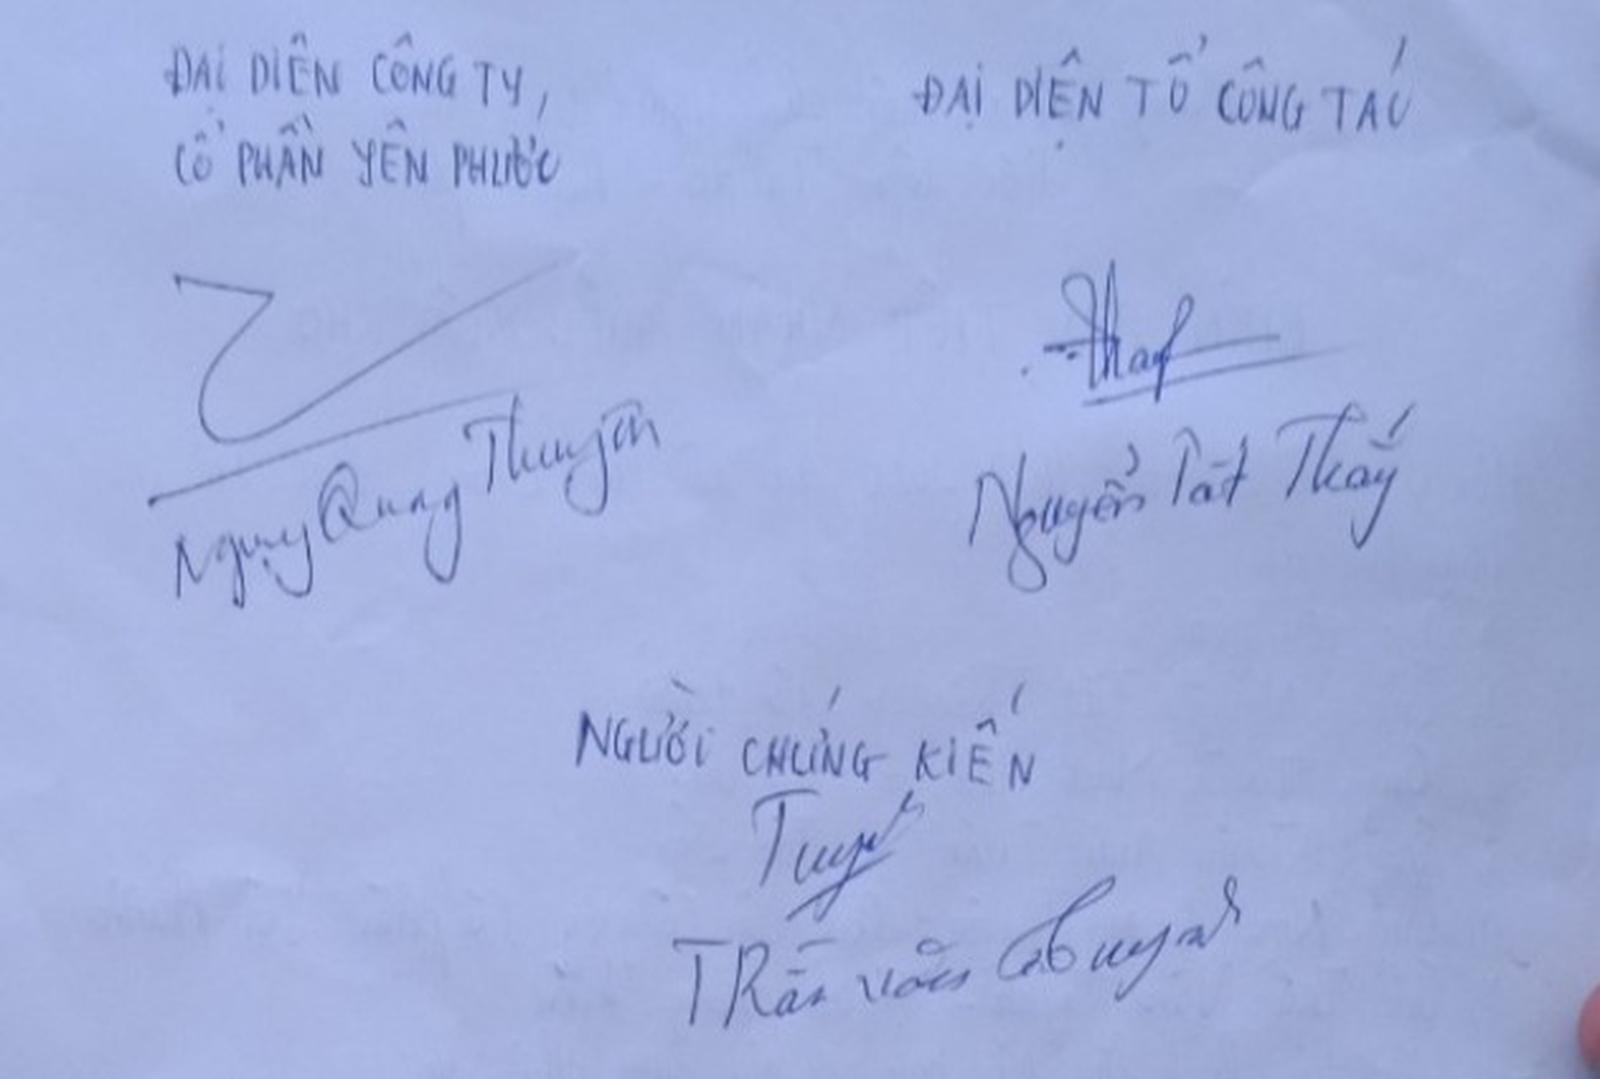 ĐẠI DIỆN CÔNG TY
CỔ PHẦN YÊN PHƯỚC
ĐẠI DIỆN TỔ CÔNG TÁC
Ngụy Quang Thuyên
Nguyễn Tất Thấy
NGƯỜI CHỨNG KIẾN
TRần văn